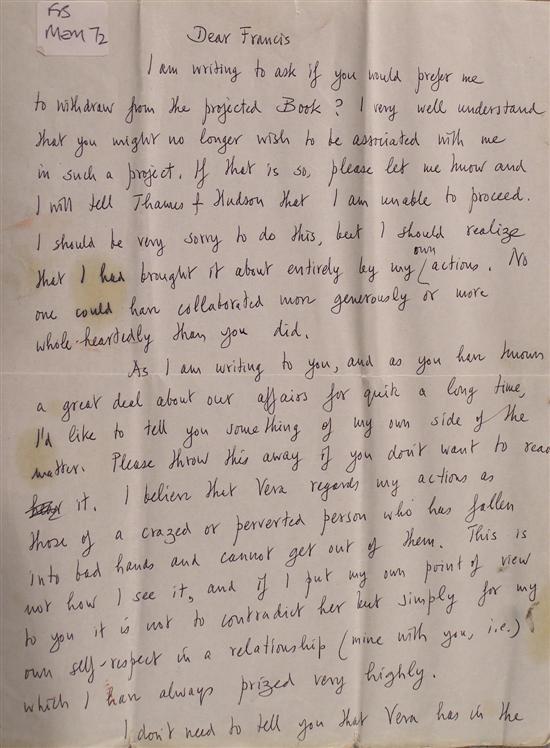 FB
Mem 72
Dear Francis
I am writing to ask if you would prefer me
to withdraw from the projected Book? I very well understand
that you might no longer wish to be associated with me
in such a project. If that is so, please let me know and
I will tell Thames + Hudson that I am unable to proceed.
I should be very sorry to do this, but I should realize
that I had brought it about entirely by my own actions. No
one could have collaborated more generously or more
whole-heartedly than you did.
As I am writing to you, and as you have known
a great deal about our affairs for quite a long time,
I'd like to tell you something of my own side of the
matter. Please throw this away if you don't want to read
it. I believe that Vera regards my actions as
those of a crazed or perverted person who has fallen
into bad hands and cannot get out of them. This is
not how I see it, and if I put my own point of view
to you it is not to contradict her but simply for my
own self-respect in a relationship (mine with you, i.e.)
which I have always prized very highly.
I don't need to tell you that Vera has in the